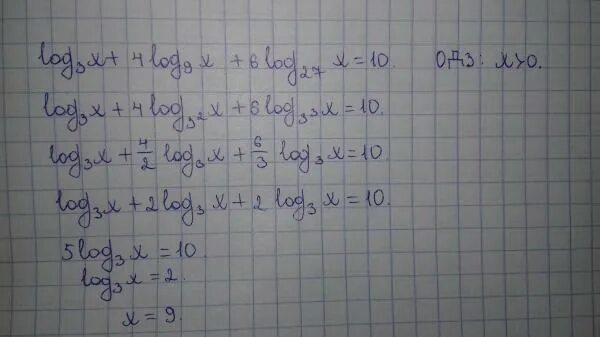 log₃x + 4log₉x + 6log₂₇x = 10. ОДЗ: x>0.
log₃x + 4log₃²x + 6log₃³x = 10.
log₃x + 4/2 log₃x + 6/3 log₃x = 10
log₃x + 2log₃x + 2log₃x = 10.
5log₃x = 10
log₃x = 2.
x = 9.